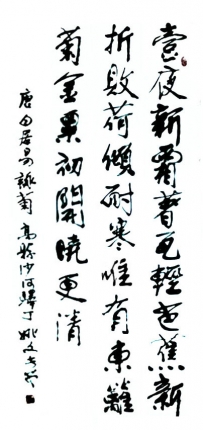 壹夜新霜著瓦輕芭蕉新
折敗荷傾耐寒唯有東籬
菊金粟初開曉更清
唐白居易詠菊